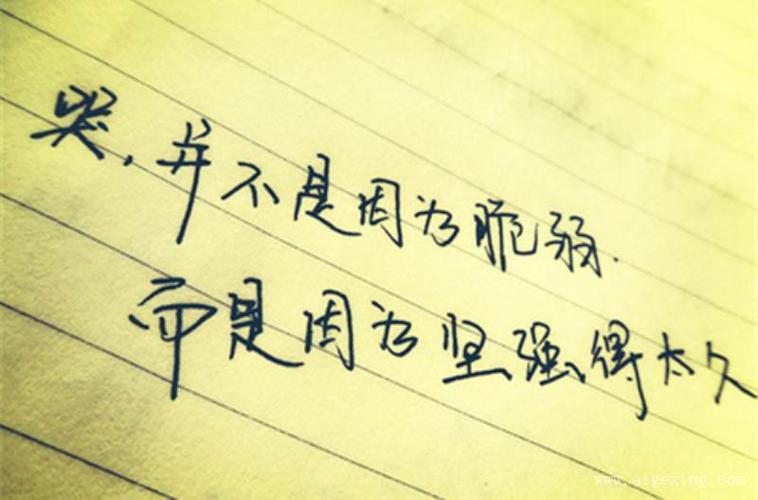 哭,并不是因为脆弱.
而是因为坚强得太久
www.aigexing.com